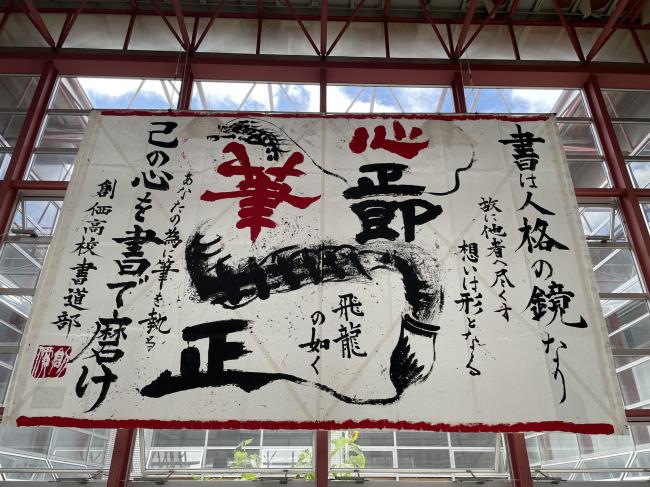 書は人格の鏡なり
故に他者へ尽くす
想いは形となる
心正即
筆正
飛龍
の如く
あなたの為に筆を執る
己の心を書で磨け
創価高校書道部